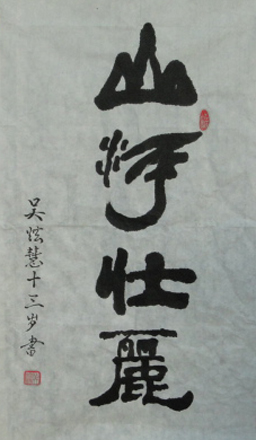 山河壮麗
吴炫慧十三岁書